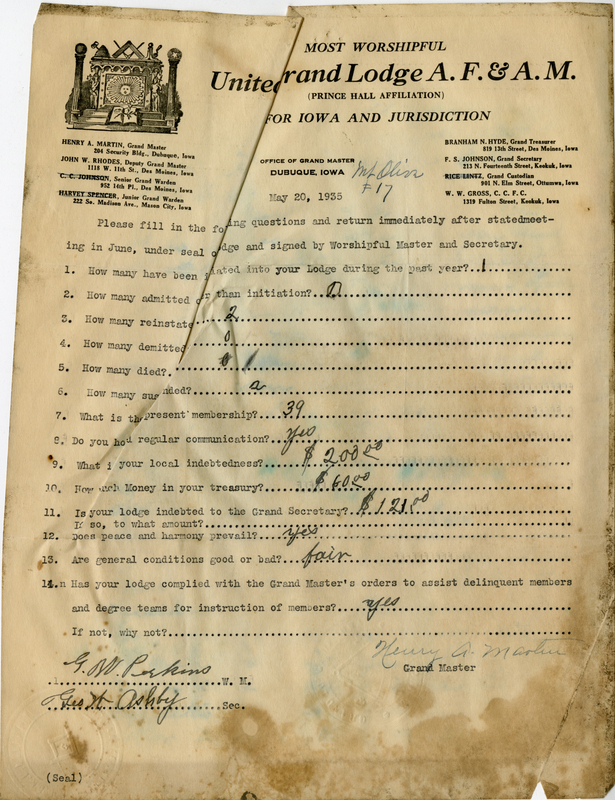 MOST WORSHIPFUL
United Grand Lodge A. F. & A. M.
(PRINCE HALL AFFILIATION)
FOR IOWA AND JURISDICTION
HENRY A. MARTIN, Grand Master
204 Security Bldg., Dubuque, Iowa
JOHN W. RHODES, Deputy Grand Master
1118 W. 11th St., Des Moines, Iowa
C. C. JOHNSON, Senior Grand Warden
952 14th Pl., Des Moines, Iowa
HARVEY SPENCER, Junior Grand Warden
222 So. Madison Ave., Mason City, Iowa
BRANHAM N. HYDE, Grand Treasurer
819 13th Street, Des Moines, Iowa
F. S. JOHNSON, Grand Secretary
213 N. Fourteenth Street, Keokuk, Iowa
RICE LENTZ, Grand Custodian
901 N. Elm Street, Ottumwa, Iowa
W. W. GROSS, C. C. F. C.
1319 Fulton Street, Keokuk, Iowa
OFFICE OF GRAND MASTER
DUBUQUE, IOWA
Mt Olive
#17
May 20, 1935
Please fill in the fo ing questions and return immediately after statedmeet-
ing in June, under seal odge and signed by Worshipful Master and Secretary.
1. How many have been iated into your Lodge during the past year? 1
2. How many admitted o r than initiation? 0
3. How many reinstate 2
4. How many demitted 0
5. How many died? 1
6. How many sus nded? 0
7. What is th present membership? 39
8. Do you ho d regular communication? yes
9. What i your local indebtedness? $ 200 00
10. How uch Money in your treasury? $ 60 00
11. Is your lodge indebted to the Grand Secretary? $ 121 00
If so, to what amount?
12. Does peace and harmony prevail? yes
13. Are general conditions good or bad? fair
14.n Has your lodge complied with the Grand Master's orders to assist delinquent members
and degree teams for instruction of members? yes
If not, why not?
Henry A. Martin
Grand Master
G. W. Perkins W. M.
Geo W Ashby Sec.
(Seal)